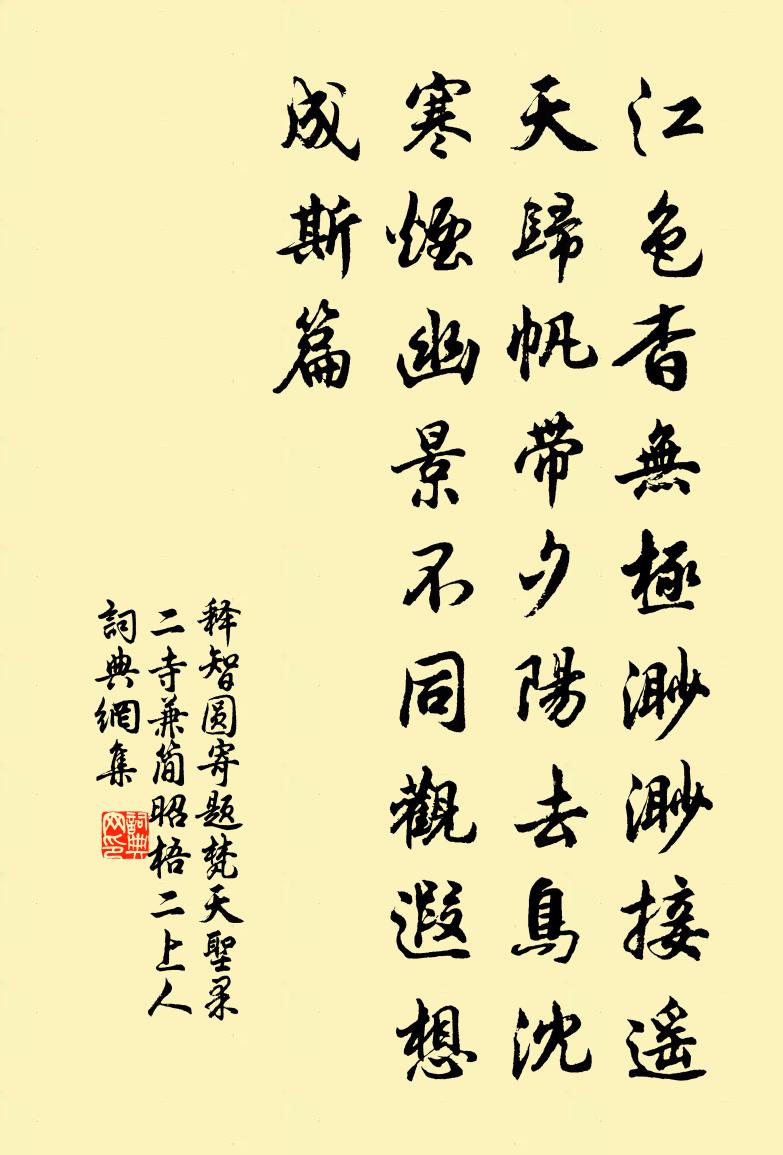 江色杳無極渺渺接遥
天歸帆帶夕陽去鳥沈
寒煙幽景不同觀遐想
成斯篇
释智圆寄题梵天聖果
二寺兼简昭梧二上人
詞典網集
詞典网印